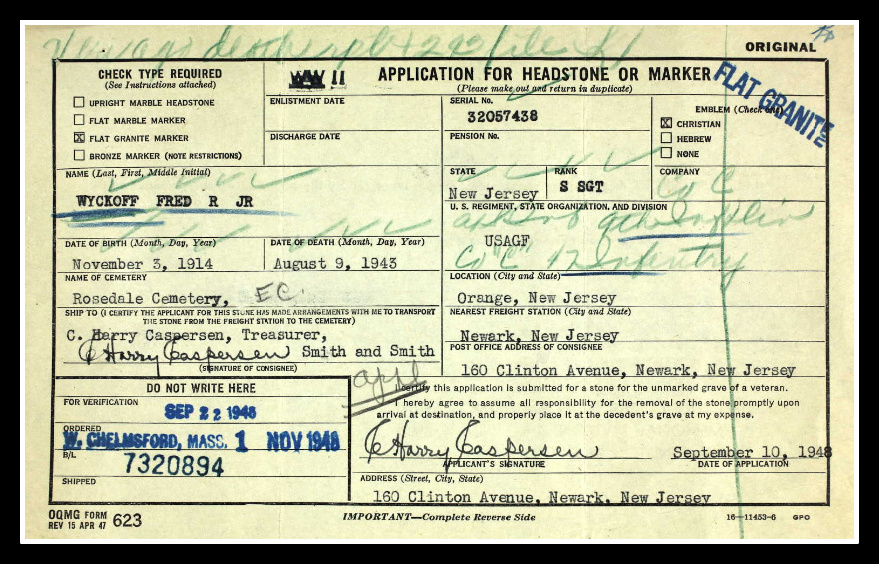 ORIGINAL
CHECK TYPE REQUIRED
(See Instructions attached)
UPRIGHT MARBLE HEADSTONE
FLAT MARBLE MARKER
X FLAT GRANITE MARKER
BRONZE MARKER (NOTE RESTRICTIONS)
ENLISTMENT DATE
DISCHARGE DATE
APPLICATION FOR HEADSTONE OR MARKER
(Please make out and return in duplicate)
FLAT GRANITE
SERIAL No.
32057438
PENSION No.
EMBLEM (Check one)
X CHRISTIAN
HEBREW
NONE
NAME (Last, First, Middle Initial)
WYCKOFF FRED R JR
STATE
New Jersey
RANK
S SGT
COMPANY
Co C
U. S. REGIMENT, STATE ORGANIZATION, AND DIVISION
USAGF
Co "C" Infantry
DATE OF BIRTH (Month, Day, Year)
November 3, 1914
DATE OF DEATH (Month, Day, Year)
August 9, 1943
NAME OF CEMETERY
Rosedale Cemetery, E.C.
LOCATION (City and State)
Orange, New Jersey
SHIP TO (I CERTIFY THE APPLICANT FOR THIS STONE HAS MADE ARRANGEMENTS WITH ME TO TRANSPORT
THE STONE FROM THE FREIGHT STATION TO THE CEMETERY)
C. Harry Caspersen, Treasurer,
C Harry Caspersen Smith and Smith
(SIGNATURE OF CONSIGNEE)
NEAREST FREIGHT STATION (City and State)
Newark, New Jersey
POST OFFICE ADDRESS OF CONSIGNEE
160 Clinton Avenue, Newark, New Jersey
DO NOT WRITE HERE
FOR VERIFICATION
SEP 22 1948
ORDERED
W. CHELMSFORD, MASS. 1 NOV 1948
B/L
7320894
SHIPPED
appl
I certify this application is submitted for a stone for the unmarked grave of a veteran.
I hereby agree to assume all responsibility for the removal of the stone promptly upon
arrival at destination, and properly place it at the decedent's grave at my expense.
C Harry Caspersen
APPLICANT'S SIGNATURE
September 10, 1948
DATE OF APPLICATION
ADDRESS (Street, City, State)
160 Clinton Avenue, Newark, New Jersey
OQMG FORM
REV 15 APR 47 623
IMPORTANT—Complete Reverse Side
16—11453-6 GPO